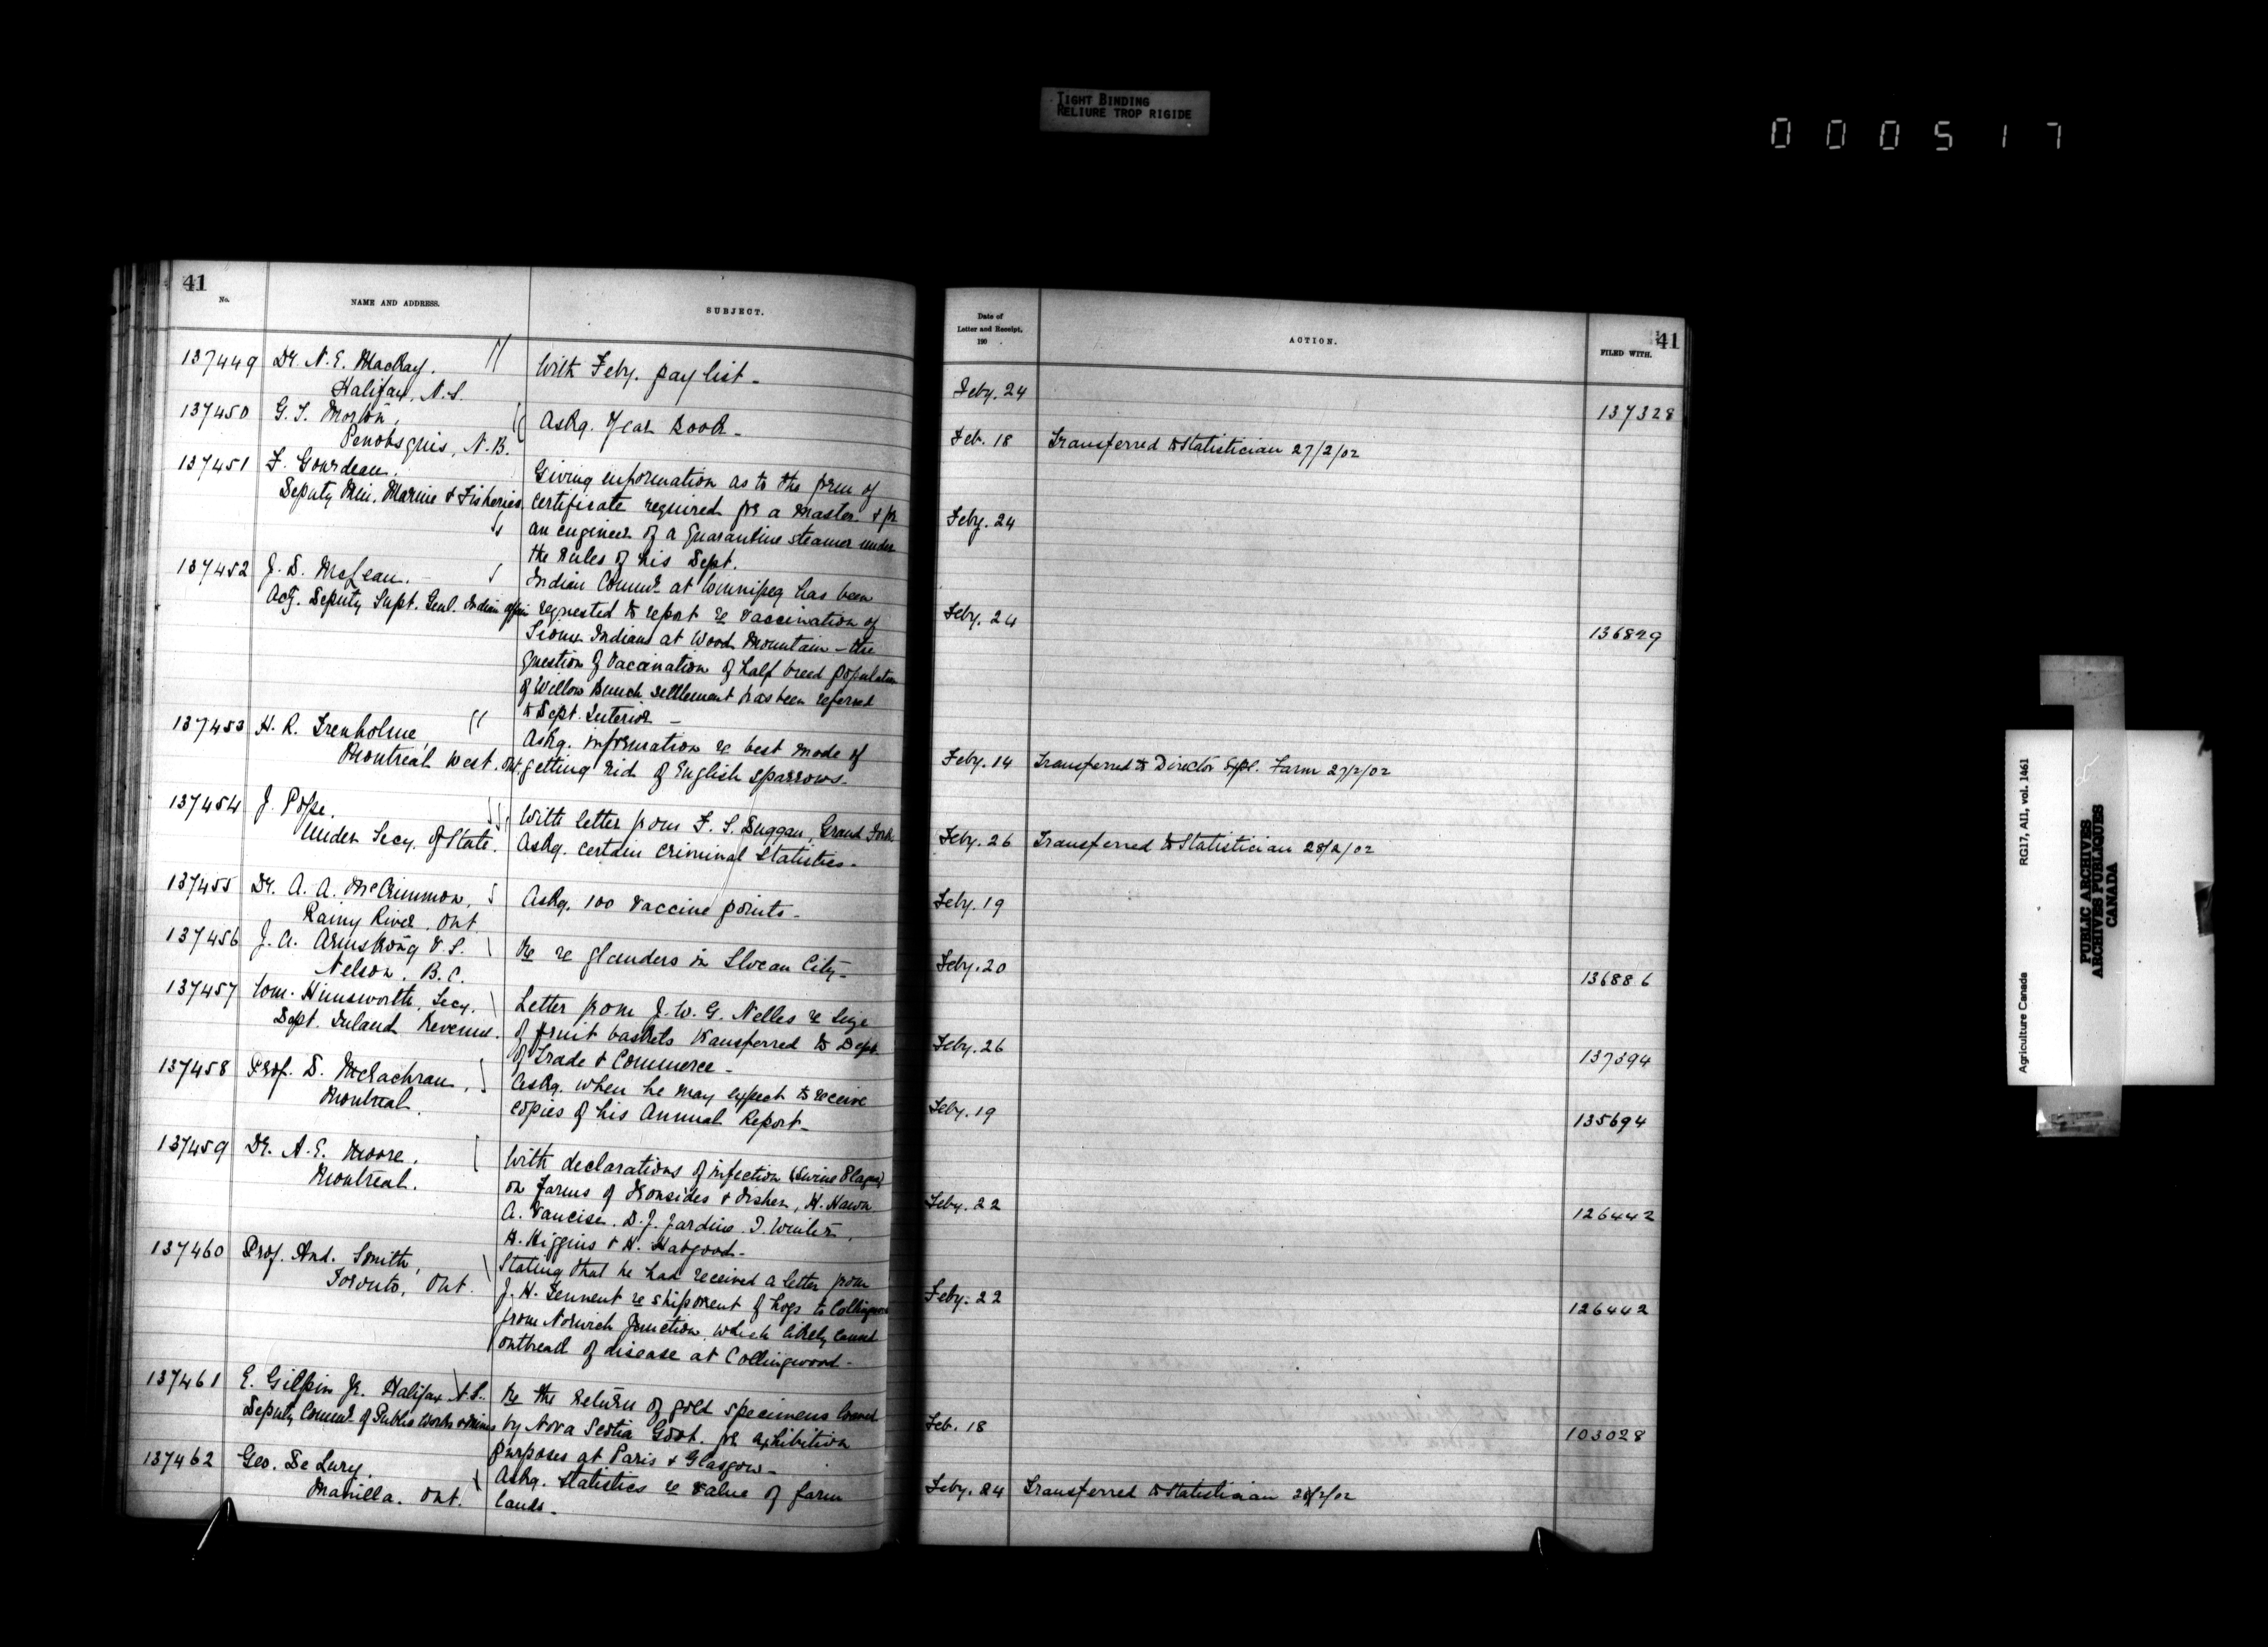 TIGHT BINDING
RELIURE TROP RIGIDE
000517
41
No.
NAME AND ADDRESS.
SUBJECT.
137449 Dr. N. E. MacKay.
Halifax, N.S.
With Feby. pay list -
137450 G. S. Morton,
Penobsquis, N.B.
Askg. Year Book -
137451 F. Gourdeau.
Deputy Min. Marine & Fisheries.
Giving information as to the form of
certificate required for a Master & for
an engineer of a Quarantine steamer under
the rules of his Dept.
137452 J. D. McLean.
Actg. Deputy Supt. Genl. Indian Affairs
Indian Commr. at Winnipeg has been
requested to report re vaccination of
Sioux Indians at Wood Mountain - the
question of vaccination of half breed population
of Willow Bunch settlement has been referred
to Dept. Interior -
137453 H. R. Trenholme,
Montreal West.
Askg. information re best mode of
getting rid of English sparrows -
137454 J. Pope.
Under Secy. of State.
With letter from F. S. Duggan, Grand Forks
Askg. certain criminal statistics -
137455 Dr. A. A. McCrimmon,
Rainy River, Ont.
Askg. 100 vaccine points -
137456 J. A. Armstrong V.S.
Nelson, B.C.
Re re glanders in Slocan City -
137457 Wm. Himsworth, Secy.
Dept. Inland Revenue.
Letter from J. W. G. Nelles re size
of fruit baskets transferred to Dept.
of Trade & Commerce -
137458 Prof. D. McEachran,
Montreal.
Askg. when he may expect to receive
copies of his Annual Report -
137459 Dr. A. E. Moore.
Montreal.
With declarations of infection (Swine Plague)
on farms of Ironsides & Disher, H. Hawn
A. Vancise, D. J. Jardine, J. Winter,
H. Higgins & H. Habgood -
137460 Prof. And. Smith,
Toronto, Ont.
Stating that he had received a letter from
J. H. Tennent re shipment of hogs to Collingwood
from Norwich Junction, which likely caused
outbreak of disease at Collingwood -
137461 E. Gilpin Jr. Halifax N.S.
Deputy Commr. of Public Works & Mines
Re the return of gold specimens loaned
by Nova Scotia Govt. for exhibition
purposes at Paris & Glasgow -
137462 Geo. De Lury.
Manilla. Ont.
Askg. statistics re value of farm
lands -
Date of
Letter and Receipt.
190 .
ACTION.
FILED WITH.
41
Feby. 24 137328
Feb. 18 Transferred to Statistician 27/2/02
Feby. 24
Feby. 24 136829
Feby. 14 Transferred to Director Expl. Farm 27/2/02
Feby. 26 Transferred to Statistician 28/2/02
Feby. 19
Feby. 20 136886
Feby. 26 137394
Feby. 19 135694
Feby. 22 126442
Feby. 22 126442
Feb. 18 103028
Feby. 24 Transferred to Statistician 28/2/02
Agriculture Canada RG17, AII, vol. 1461
PUBLIC ARCHIVES
ARCHIVES PUBLIQUES
CANADA